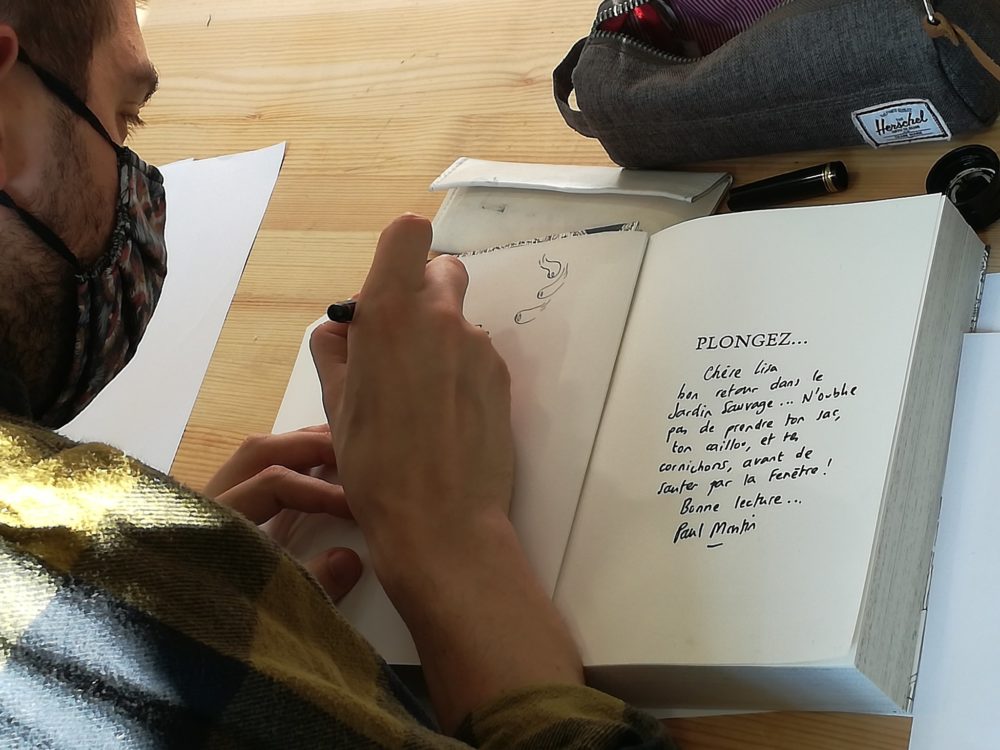 Herschel
PLONGEZ...
Chère Lisa
bon retour dans le
Jardin Sauvage... N'oublie
pas de prendre ton sac,
ton caillou, et tes
cornichons, avant de
sauter par la Fenêtre !
Bonne lecture...
Paul Martin